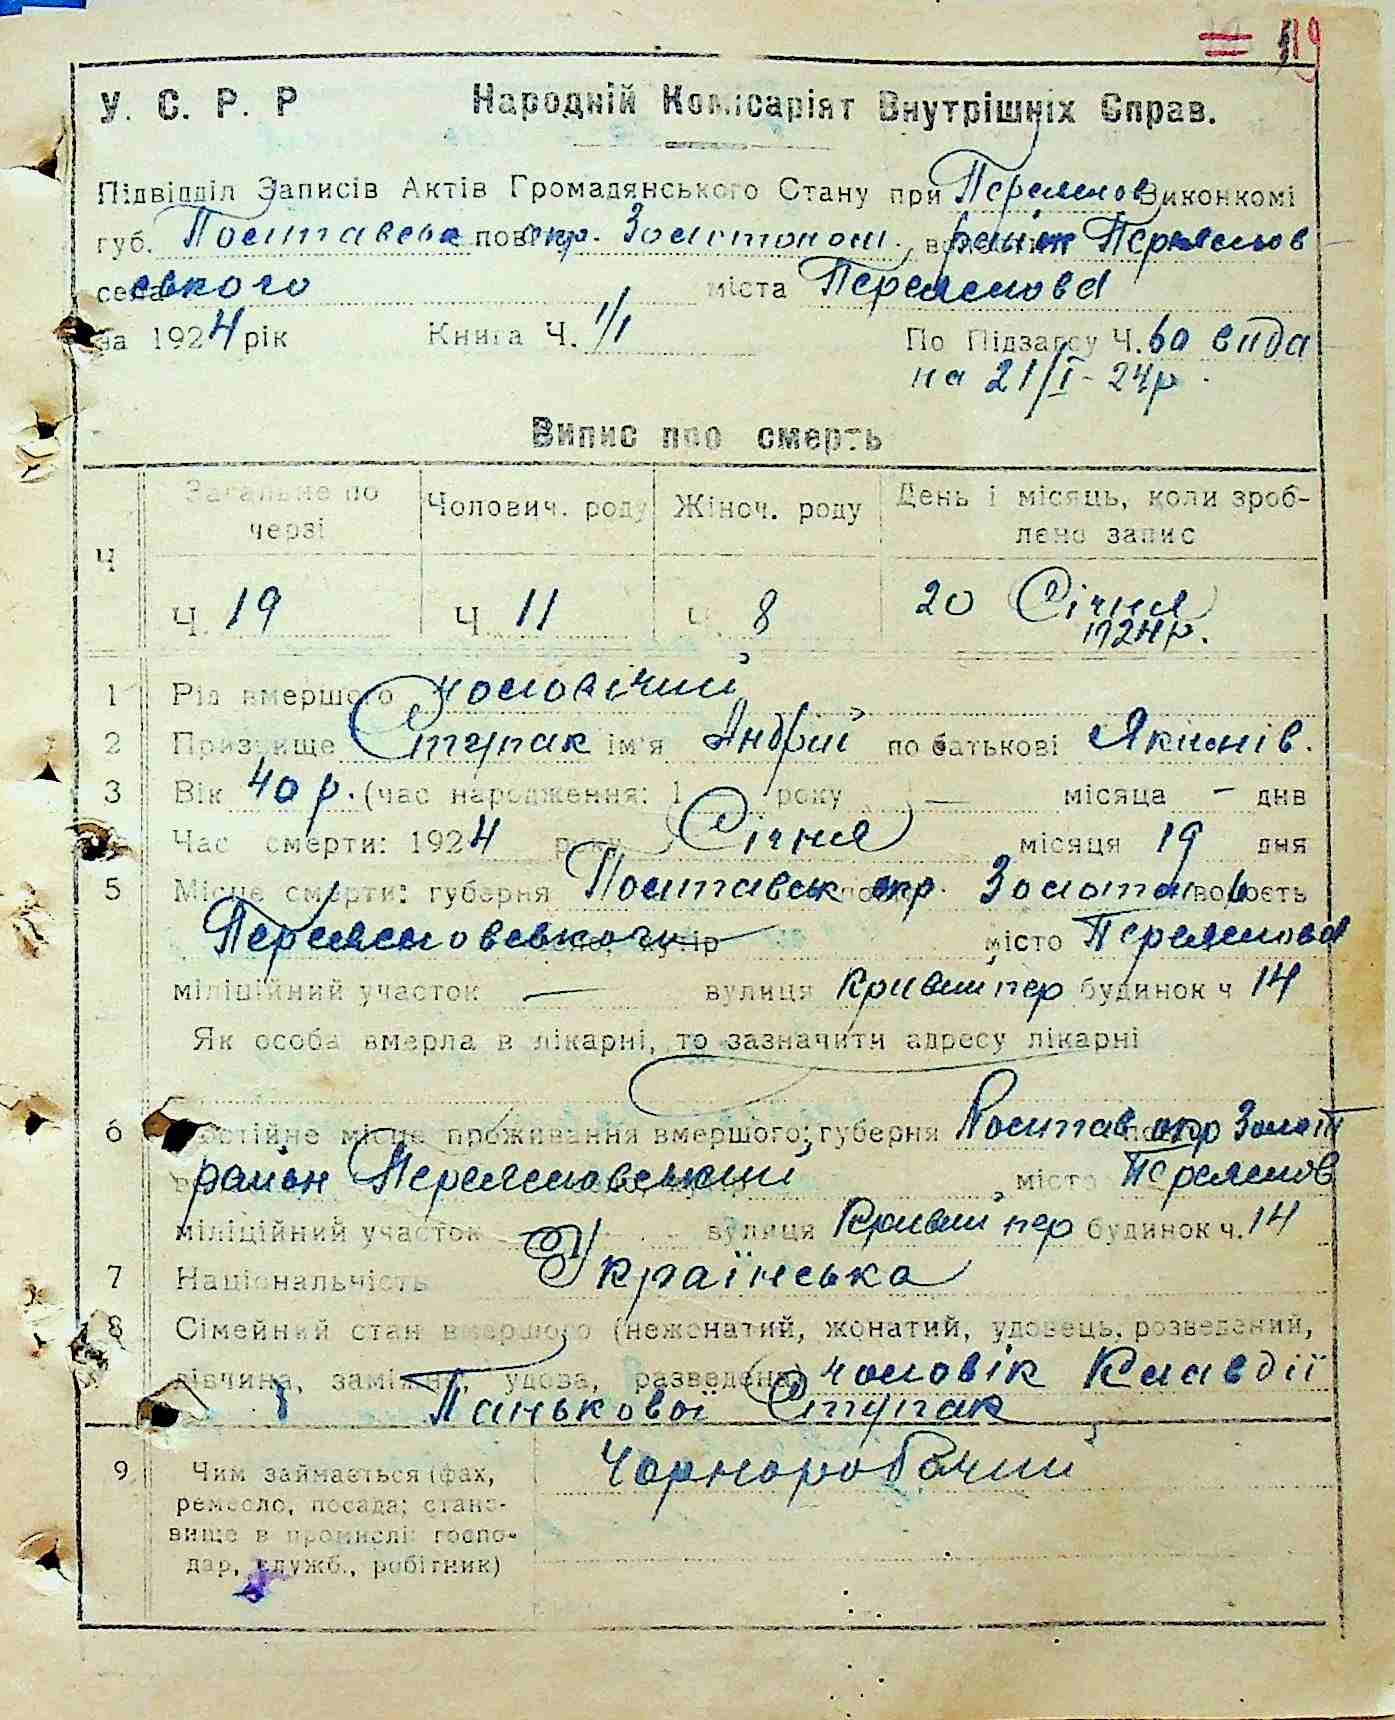 119
У. С. Р. Р Народній Комісаріят Внутрішніх Справ.
Підвідділ Записів Актів Громадянського Стану при Переяслов Виконкомі
губ. Полтавська пов. окр. Золотонош. район Переяслов
села ського міста Переяслова
за 1924 рік Книга Ч. 1/1 По Підзагсу Ч. 60 вида
на 21/I-24р.
Випис про смерть
Ч Загальне по черзі Чолович. роду Жіноч. роду День і місяць, коли зроб-
лено запис
Ч. 19 Ч 11 Ч. 8 20 Січня
1924р.
1 Рід вмершого чоловічий
2 Призвище Ступак ім'я Андрій по батькові Якимів.
3 Вік 40 р. (час народження: 1 року — місяца - днв
Час смерти: 1924 року Січня місяця 19 дня
5 Місце смерти: губерня Полтавськ окр. Золотон волость
Переясловського хутір місто Переяслова
міліційний участок — вулиця Кривий пер будинок ч 14
Як особа вмерла в лікарні, то зазначити адресу лікарні
6 Постійне місце проживання вмершого: губерня Полтав окр Золот
район Переясловський місто Переяслов
міліційний участок вулиця Кривий пер будинок ч. 14
7 Національність Українська
8 Сімейний стан вмершого (нежонатий, жонатий, удовець, розведений,
дівчина, заміжня, удова, разведена) чоловік Клавдії
Панькової Ступак
9 Чим займається (фах, Чорноробочий
ремесло, посада; стано-
вище в промислі: госпо-
дар, служб., робітник)